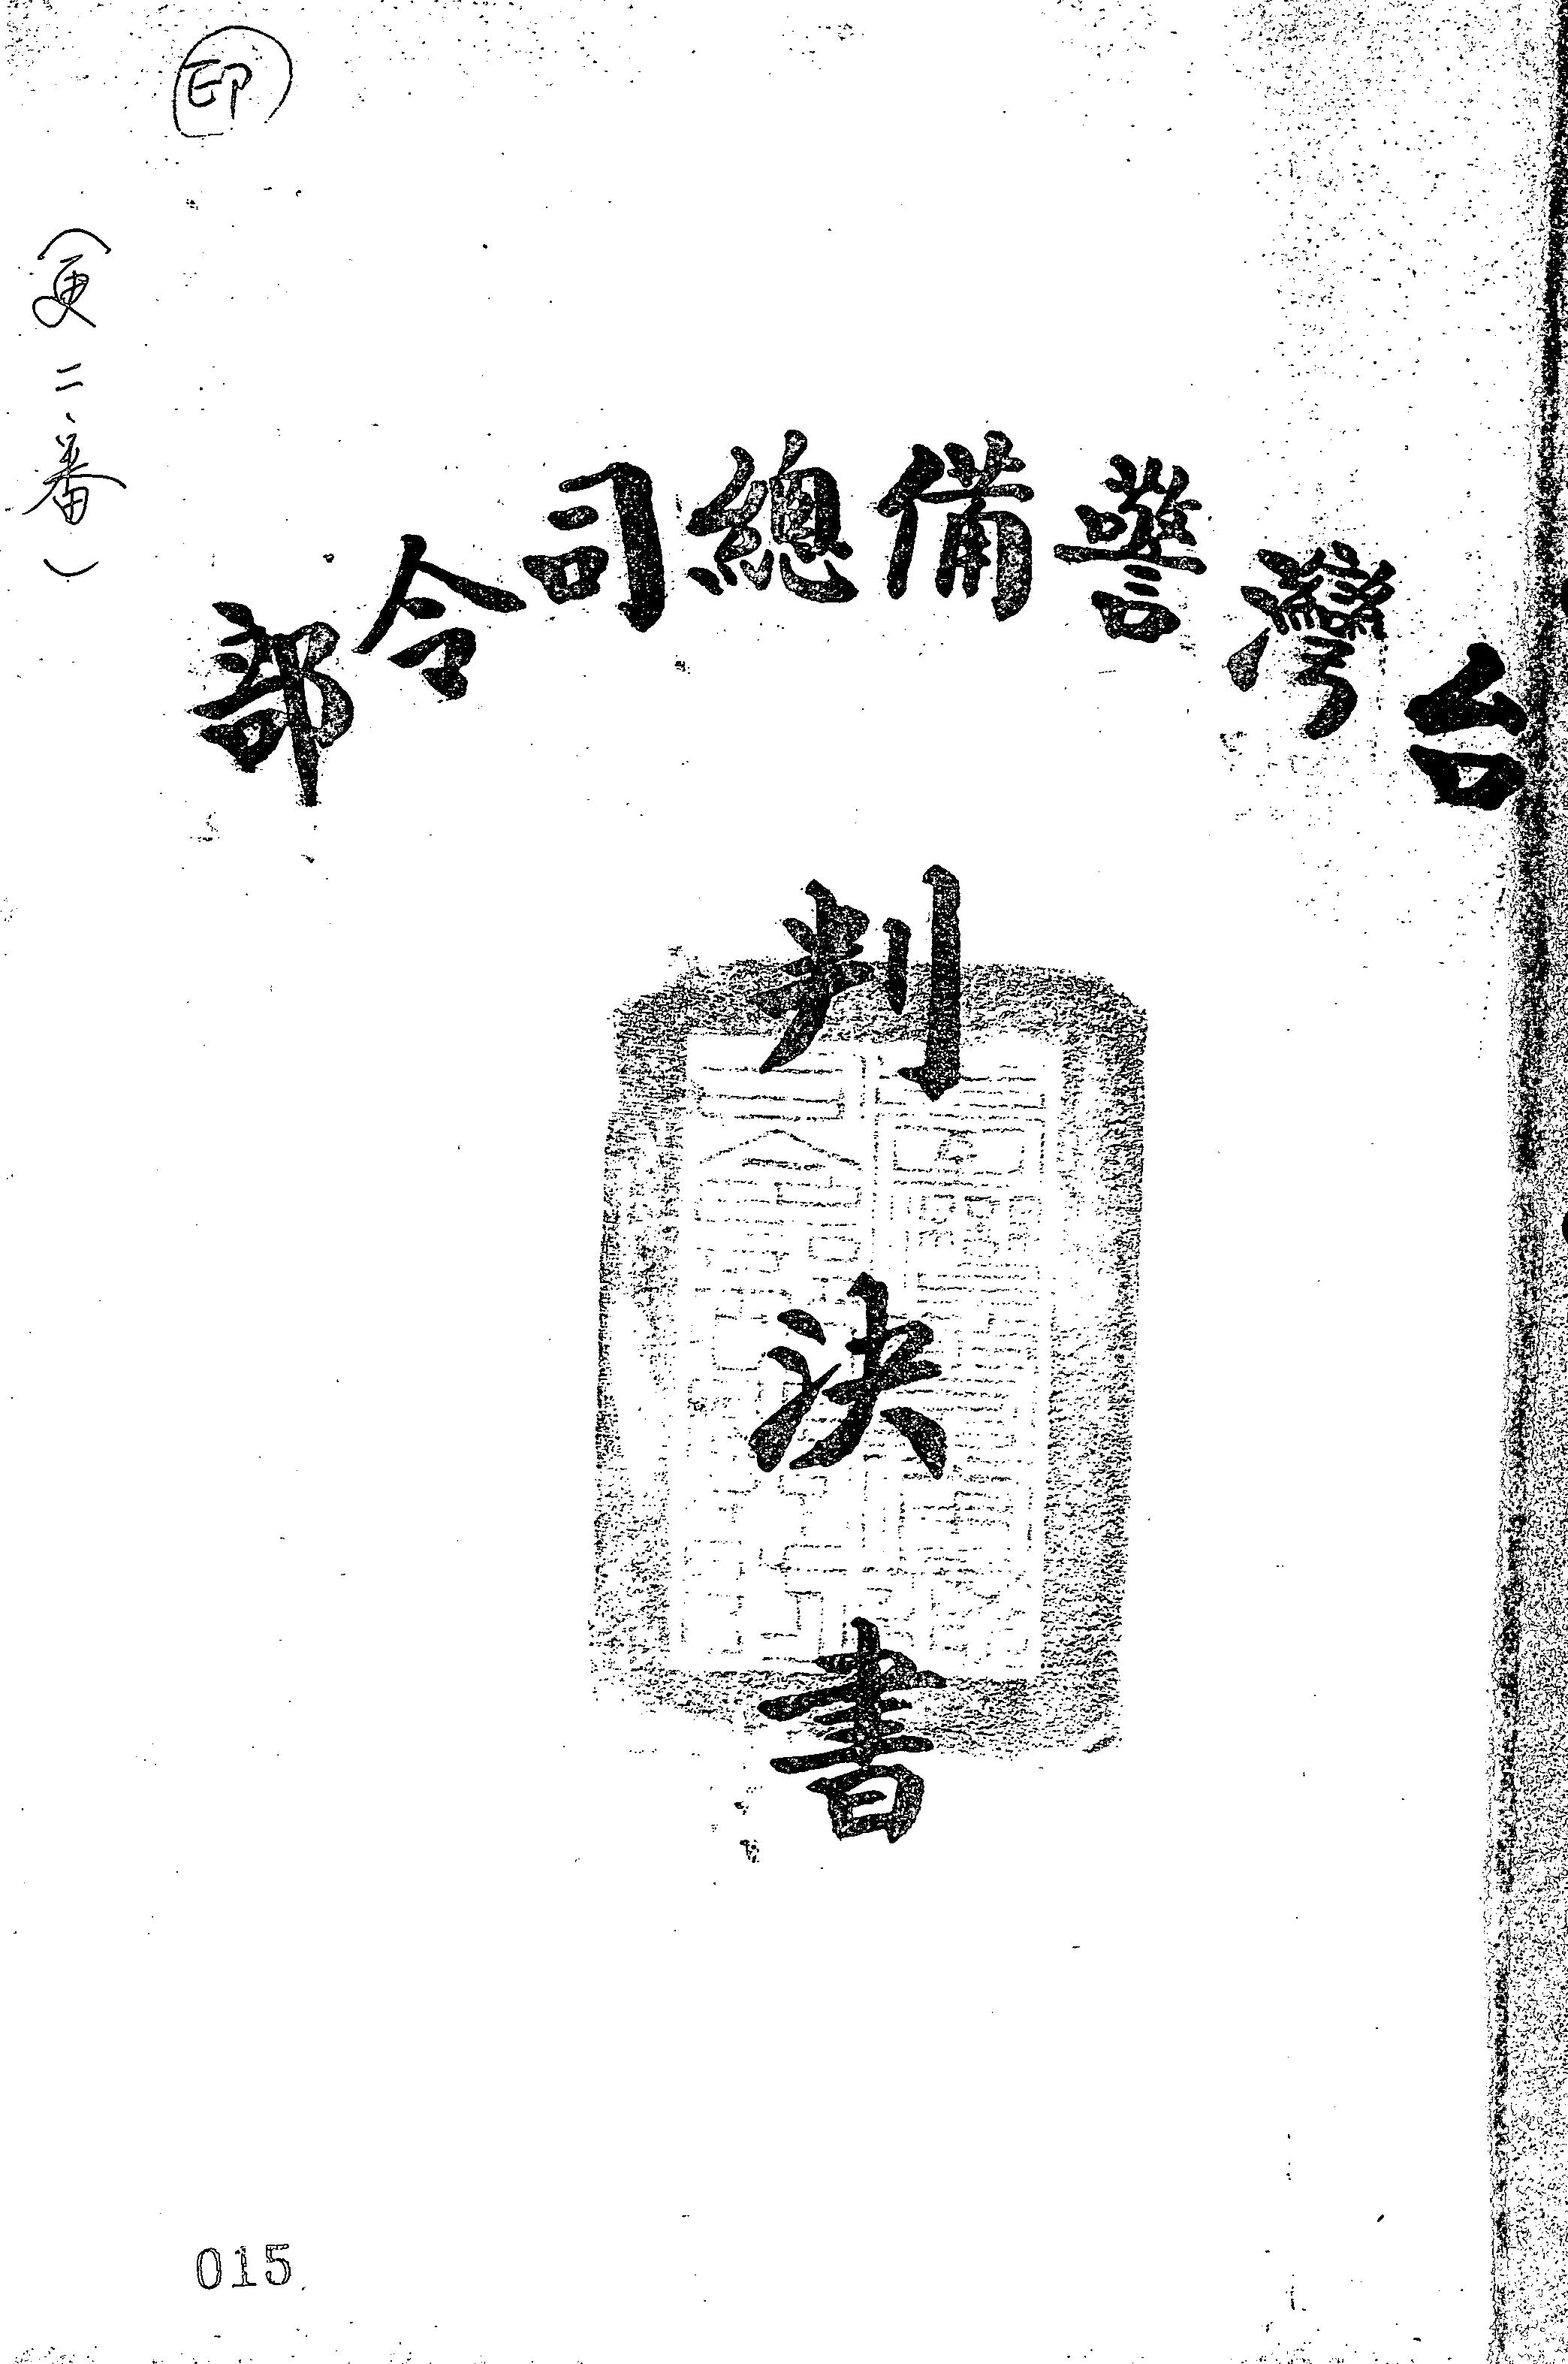 台灣警備總司令部
判決書
印
(更二、番)
015